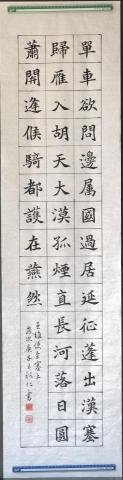 單車欲問邊屬國過居延征蓬出漢塞
歸雁入胡天大漠孤煙直長河落日圓
蕭關逢候騎都護在燕然
王維使至塞上
歲次庚子
仁書